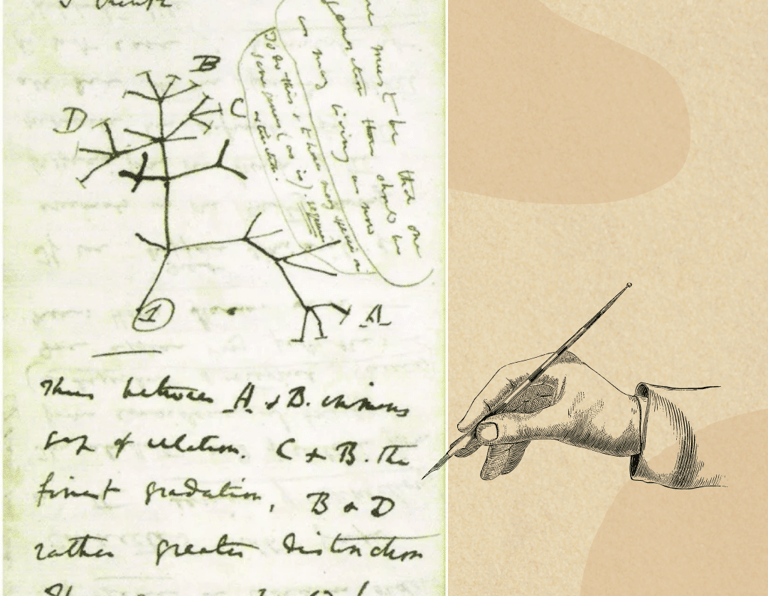 B
C
D
A
1
must be that one
generation then should be
as many living as now
To do this & to have many species in
same genus (as is). requires
extinction.
Thus between A & B. immense
gap of relation. C & B. the
finest gradation, B & D
rather greater distinction